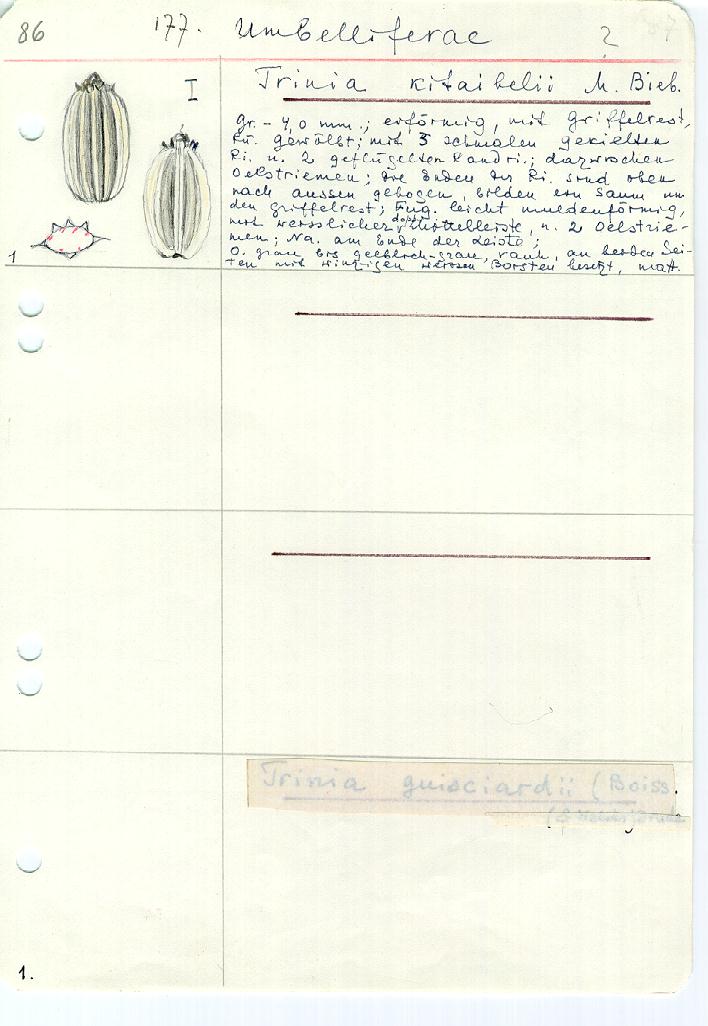 86 177. Umbelliferae ? 87
I
Trinia kitaibelii M. Bieb.
Gr. - 4,0 mm.; eiförmig, mit Griffelrest,
Rü. gewölbt; mit 3 schmalen gekielten
Ri. u. 2 geflügelten Randri.; dazwischen
Oelstriemen; die Enden der Ri. sind oben
nach aussen gebogen, bilden ein Saum um
den Griffelrest; Fug. leicht muldenförmig,
mit weisslicher, Mittelleiste, u. 2 Oelstrie-
men; Na. am Ende der Leiste;
O. grau bis gelblich-grau, rauh, an beiden Sei-
ten mit winzigen weissen Borsten besetzt, matt.
1
Trinia guiciardii (Boiss.
1.